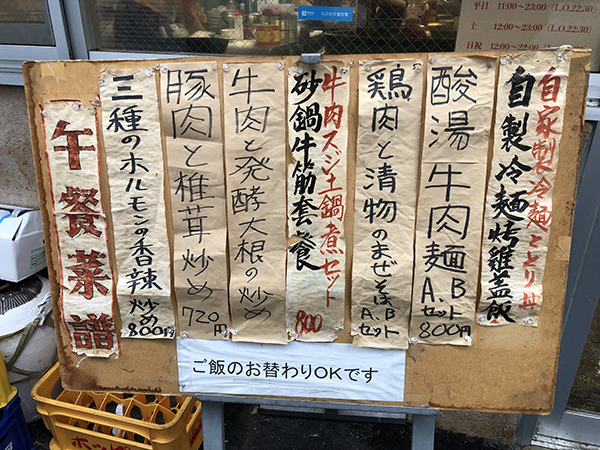 平日 11:00~23:00 (L.O.22:30)
土 12:00~23:00 (L.O.22:30)
日祝 12:00~22:00
自家製冷麺ととり丼
自製冷麺烤雞蓋飯
酸湯牛肉麺 A、Bセット 800円
鶏肉と漬物のまぜそば A、Bセット
牛肉スジ土鍋煮セット
砂鍋牛筋套餐 800
牛肉と発酵大根の炒め
豚肉と椎茸炒め 720円
三種のホルモンの香辣炒め 800円
午餐菜譜
ご飯のお替わりOKです
ホッピ